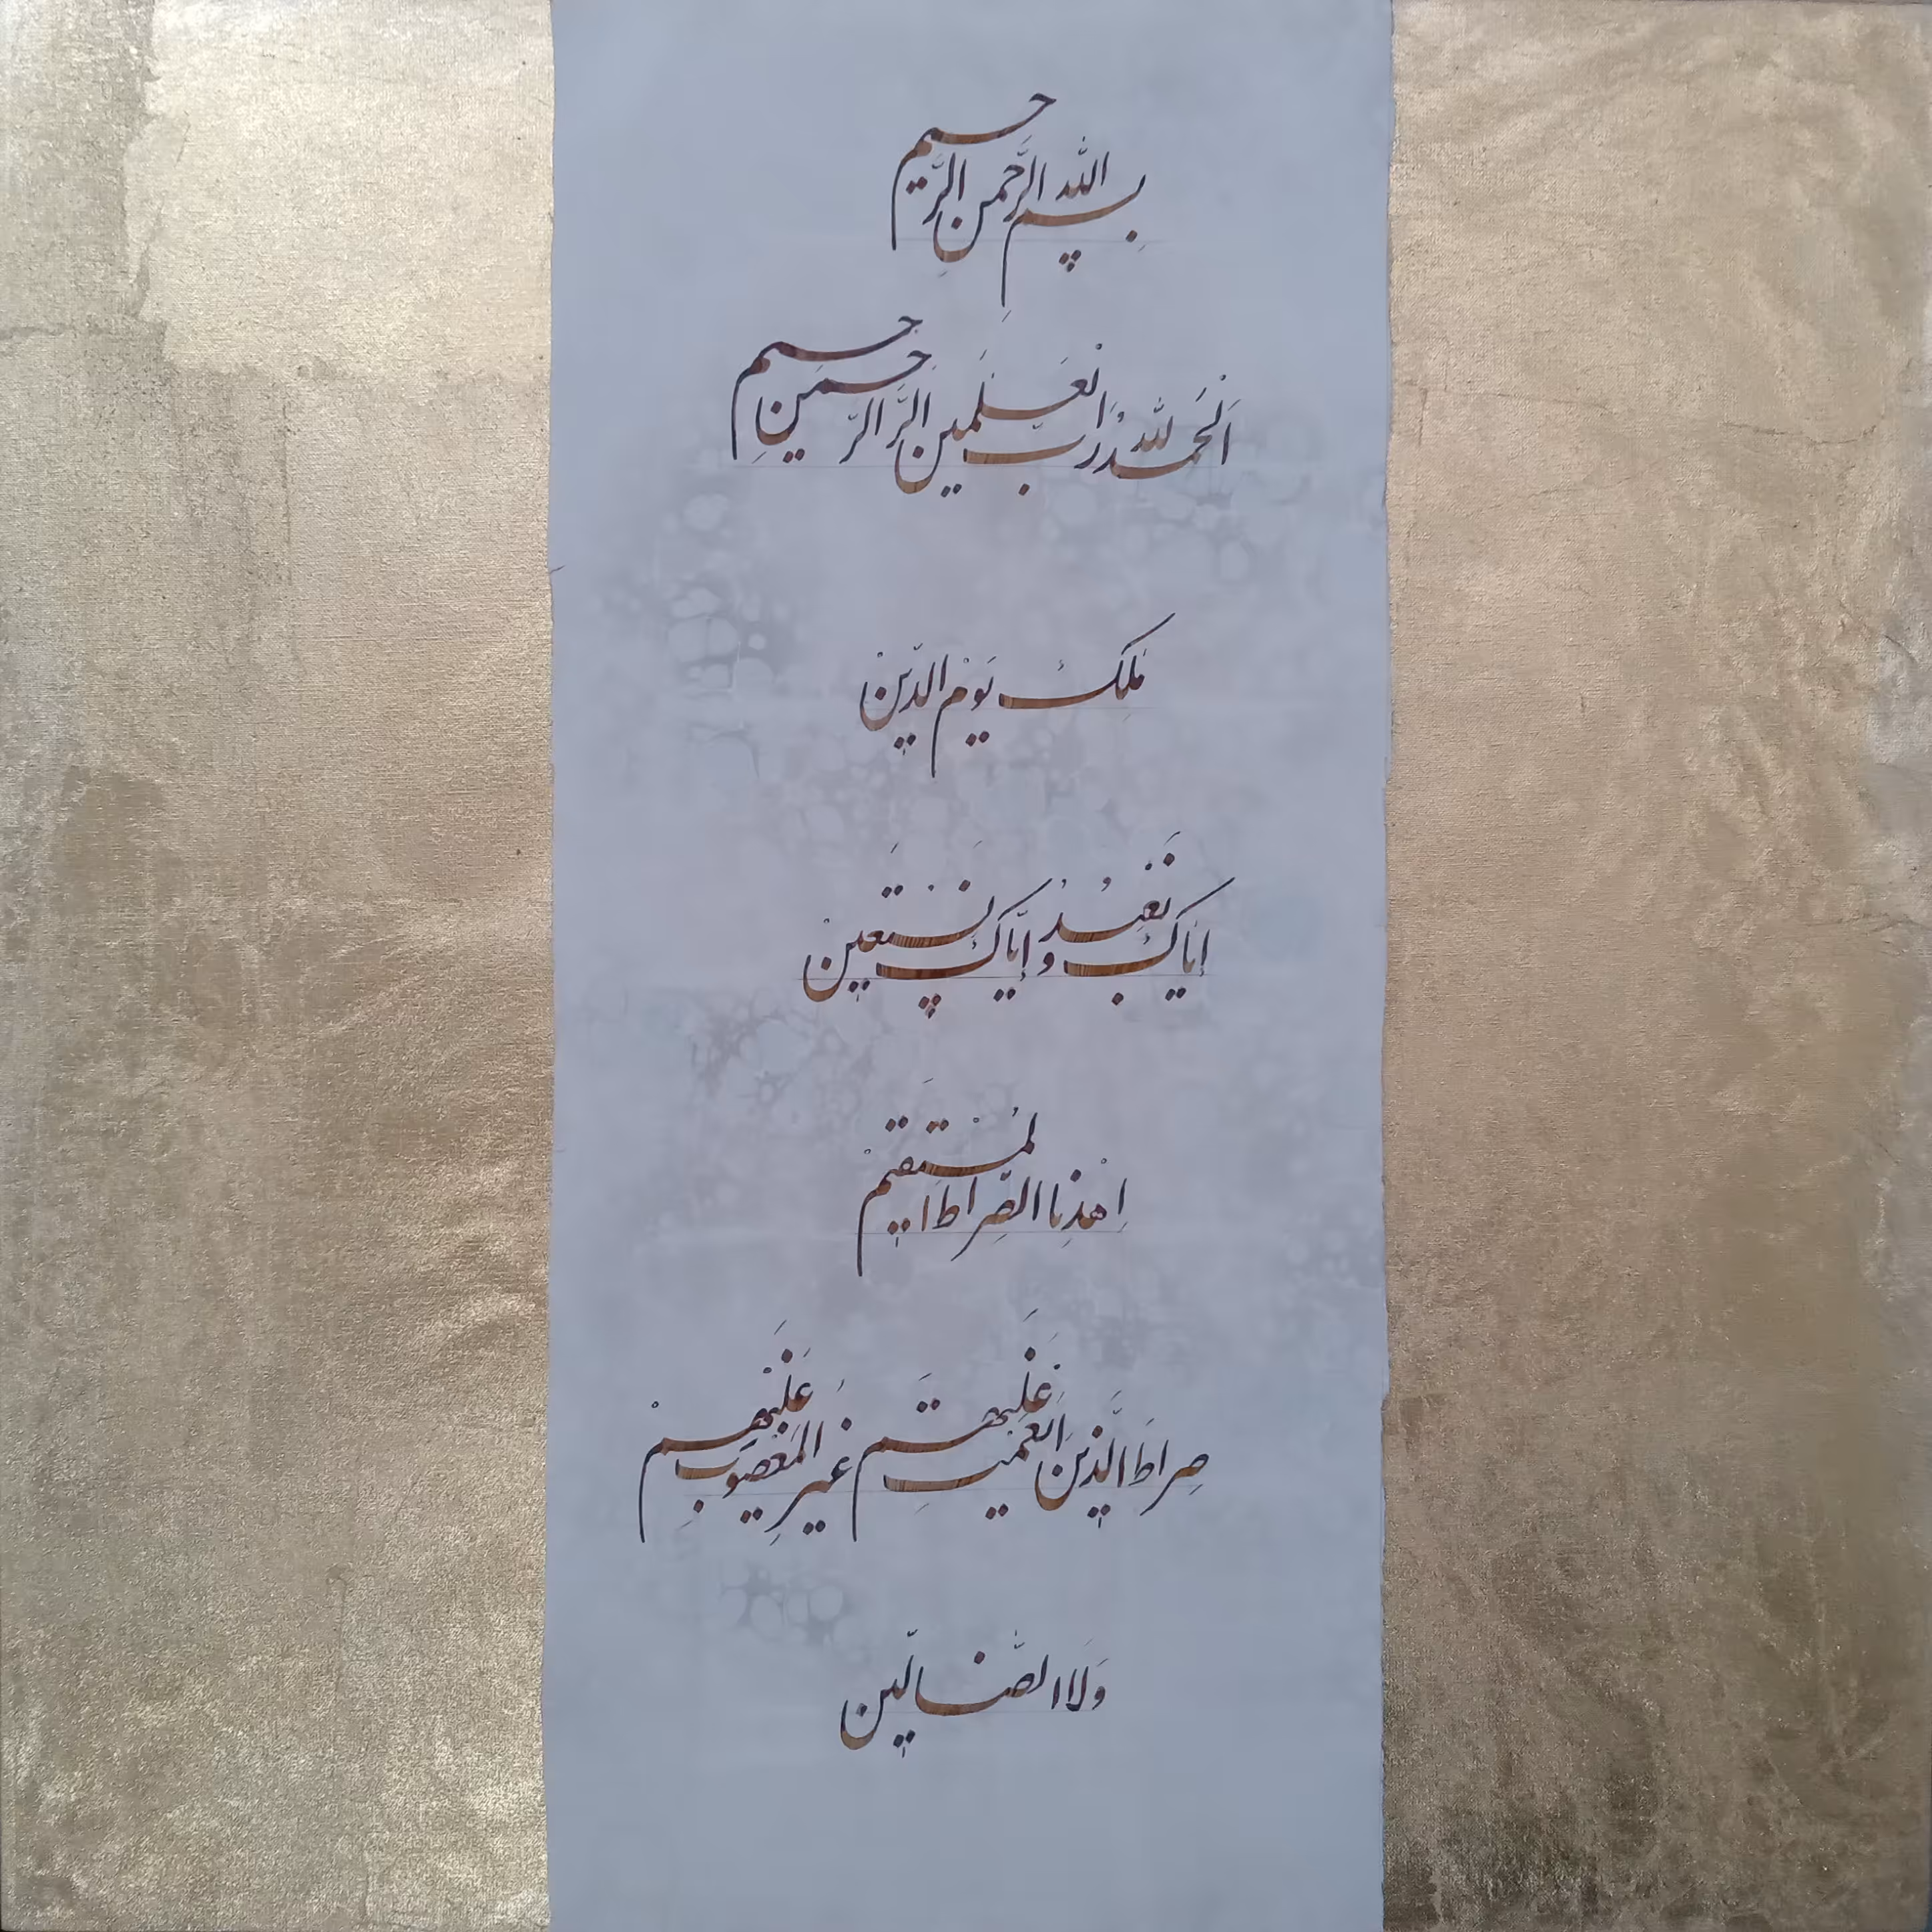 بِسمِ اللّٰه الرَّحمنِ الرَّحیم
اَلْحَمدُ لِلّٰه رَبِّ الْعٰلَمینَ الرَّحمٰنِ الرَّحیم
مٰلِکِ یَوْمِ الدّینْ
اِیّاکَ نَعْبُدُ وَ اِیّاکَ نَسْتَعینْ
اِهْدِنَا الصِّراطَ الْمُسْتَقیمْ
صِراطَ الَّذینَ اَنْعَمْتَ عَلَیْهِمْ غَیْرِ الْمَغْضوبِ عَلَیْهِمْ
وَلَا الضّالّین